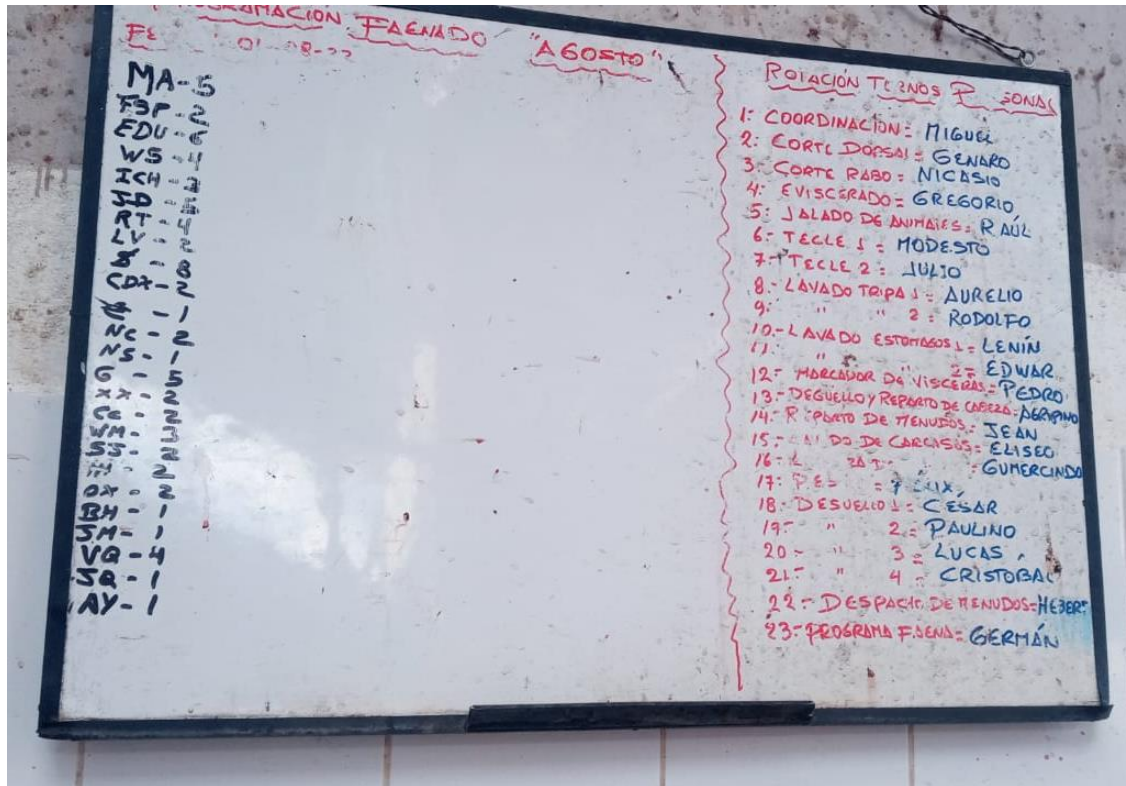 PROGRAMACIÓN FAENADO "AGOSTO"
01-08-22
MA-5
FBP-2
EDU-6
WS-4
ICH-2
JD-5
RT-4
LV-2
-8
CDX-2
-1
NC-2
NS-1
G-5
XX-2
CC-2
VM-3
SS-2
H-2
OX-2
BH-1
SM-1
VQ-4
JQ-1
AY-1
ROTACIÓN TURNOS PERSONAL
1: COORDINACIÓN= MIGUEL
2: CORTE DORSAL= GENARO
3: CORTE RABO= NICASIO
4: EVISCERADO= GREGORIO
5: JALADO DE ANIMALES= RAÚL
6: TECLE 1= MODESTO
7: TECLE 2= JULIO
8.- LAVADO TRIPA 1= AURELIO
9: " " 2= RODOLFO
10.- LAVADO ESTOMAGOS 1= LENÍN
11: " " 2= EDWAR
12.- MARCADOR DE VISCERAS= PEDRO
13.- DEGUELLO Y REPARTO DE CABEZA= AGRIPINO
14.- REPARTO DE MENUDOS= JEAN
15.- DE CARCASAS= ELISEO
16.- = GUMERCINDO
17: = FÉLIX
18.- DESUELLO 1= CÉSAR
19.- " 2= PAULINO
20.- " 3= LUCAS
21.- " 4= CRISTOBAL
22.- DESPACHO DE MENUDOS= HEBERT
23.- PROGRAMA FAENA= GERMÁN